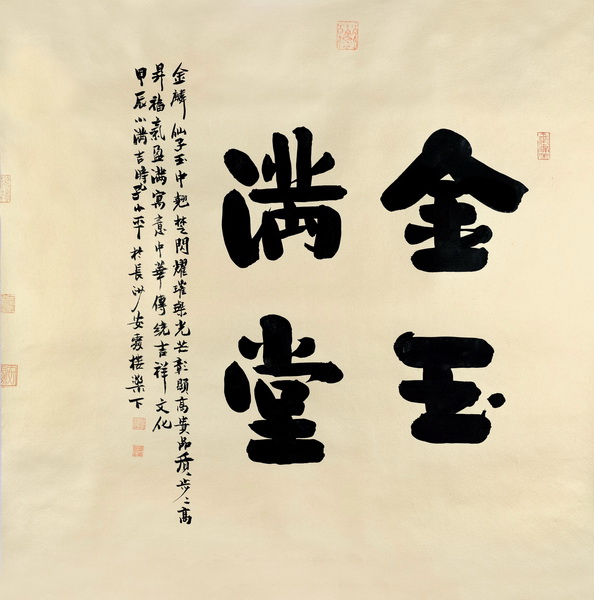 金玉
满堂
金麟仙子玉中翘楚閃耀璀璨光芒彰顯高貴品質步〻高
昇福氣盈满寓意中華傳统吉祥文化
甲辰小满吉時子小平於長沙安愛樓棠下